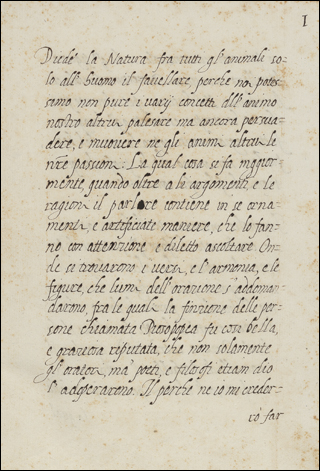 1
Diede la Natura fra tutti gl'animali so-
lo all'huomo il favellare perche no potes-
simo non pure i varij concetti dell'animo
nostro altrui palesare ma ancora persua-
dere, e muovere ne gli animi altrui le
nr̃e passioni: La qual cosa si fa maggior-
mente, quando oltre a le argomenti, e le
ragioni il parlare contiene in se orna-
menti, e artificiate maniere, che lo fan-
no con attenzione e diletto ascoltare. On-
de si trovarono i versi, e l'armonia, e le
figure, che lumi dell'orazione s'addoman-
darono, fra le quali la finzione delle per-
sone chiamata Prosopopea fu cosa bella,
e graziosa reputata, che non solamente
gl'oratori, ma poeti, e filosofi etiam dio
l'adoperarono. Il perche ne io mi creder-
rò far